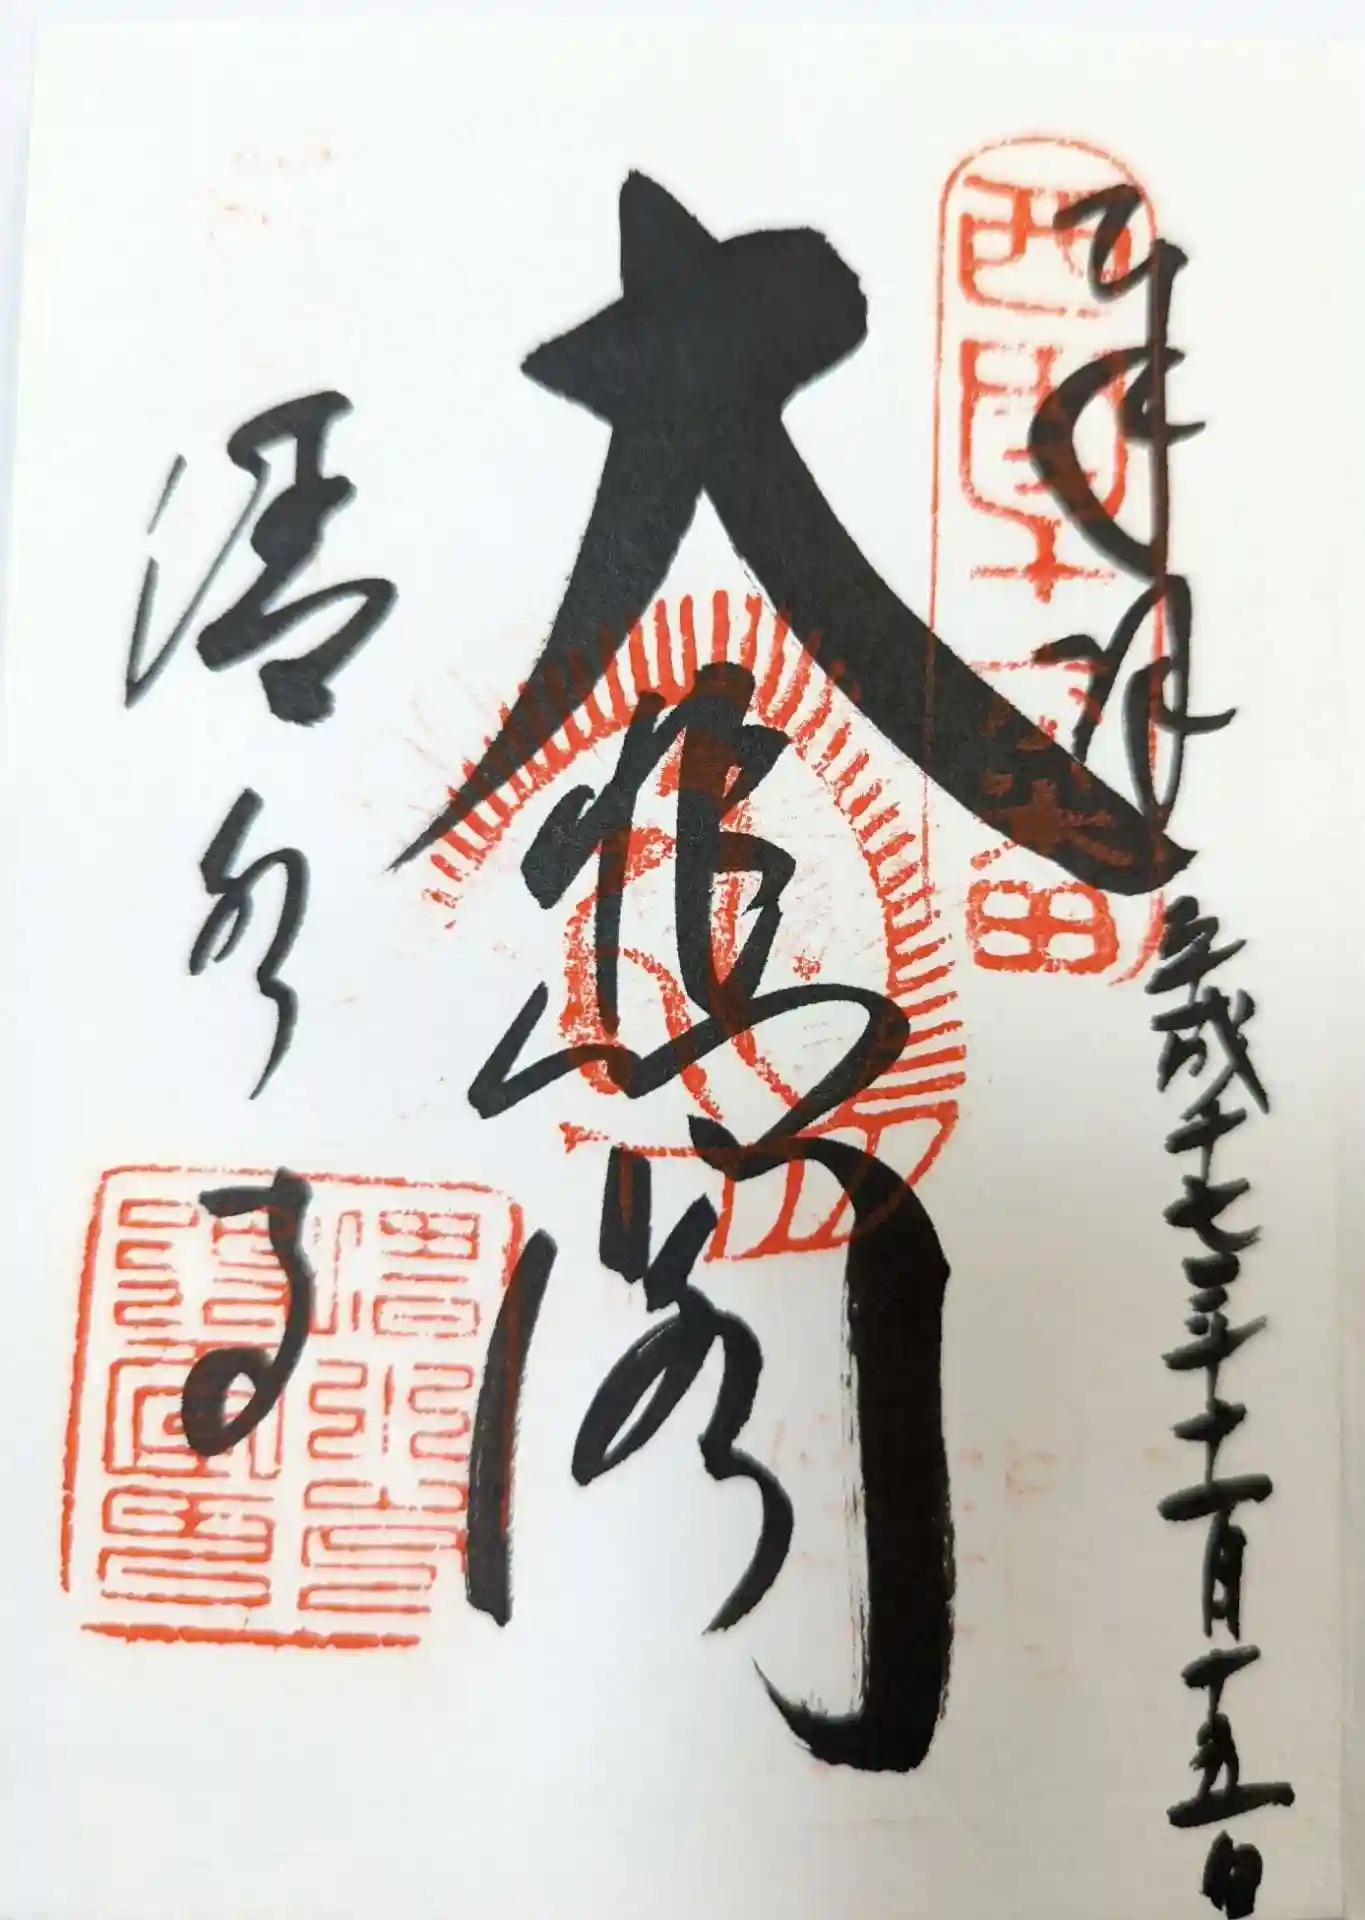 奉拝
西国十六番
平成十七年十一月十五日
大悲閣
清水寺